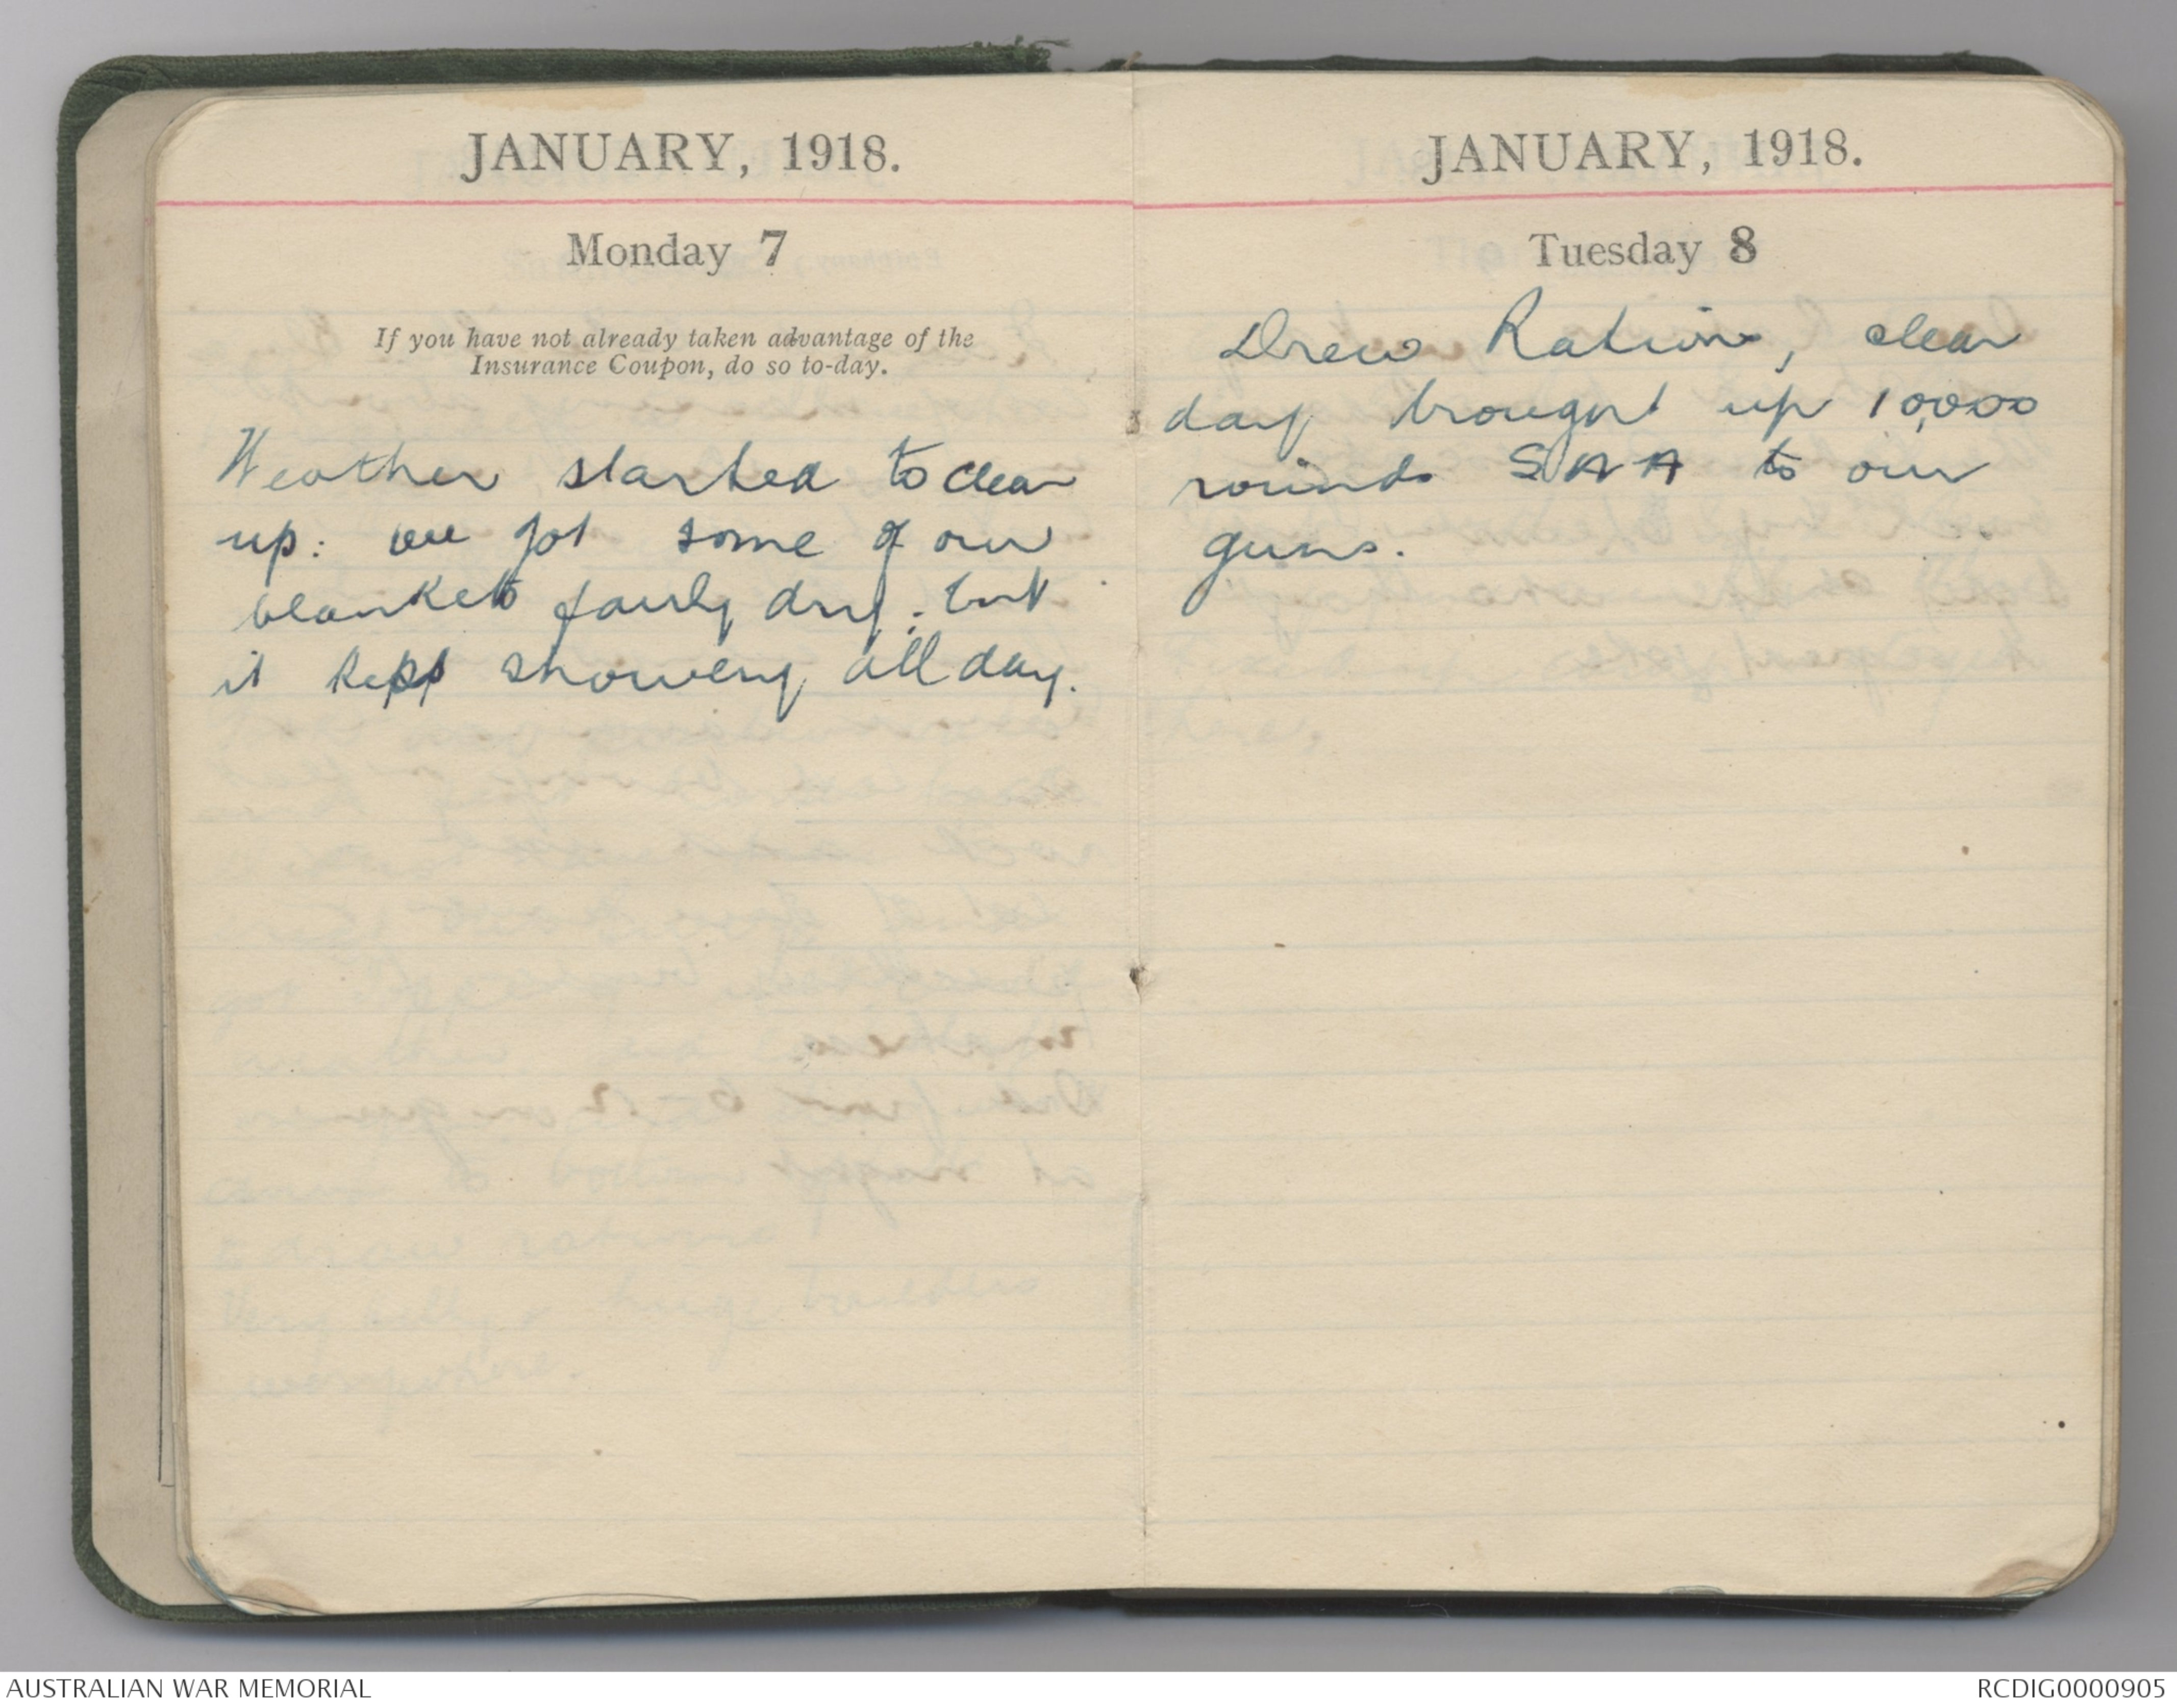 JANUARY, 1918.
Monday 7
If you have not already taken advantage of the
Insurance Coupon, do so to-day.
Weather started to clear
up: we got some of our
blankets fairly dry: but
it kept showery all day.
JANUARY, 1918.
Tuesday 8
Drew Rations, clear
day brought up 10,000
rounds SAA to our
guns.
AUSTRALIAN WAR MEMORIAL
RCDIG0000905